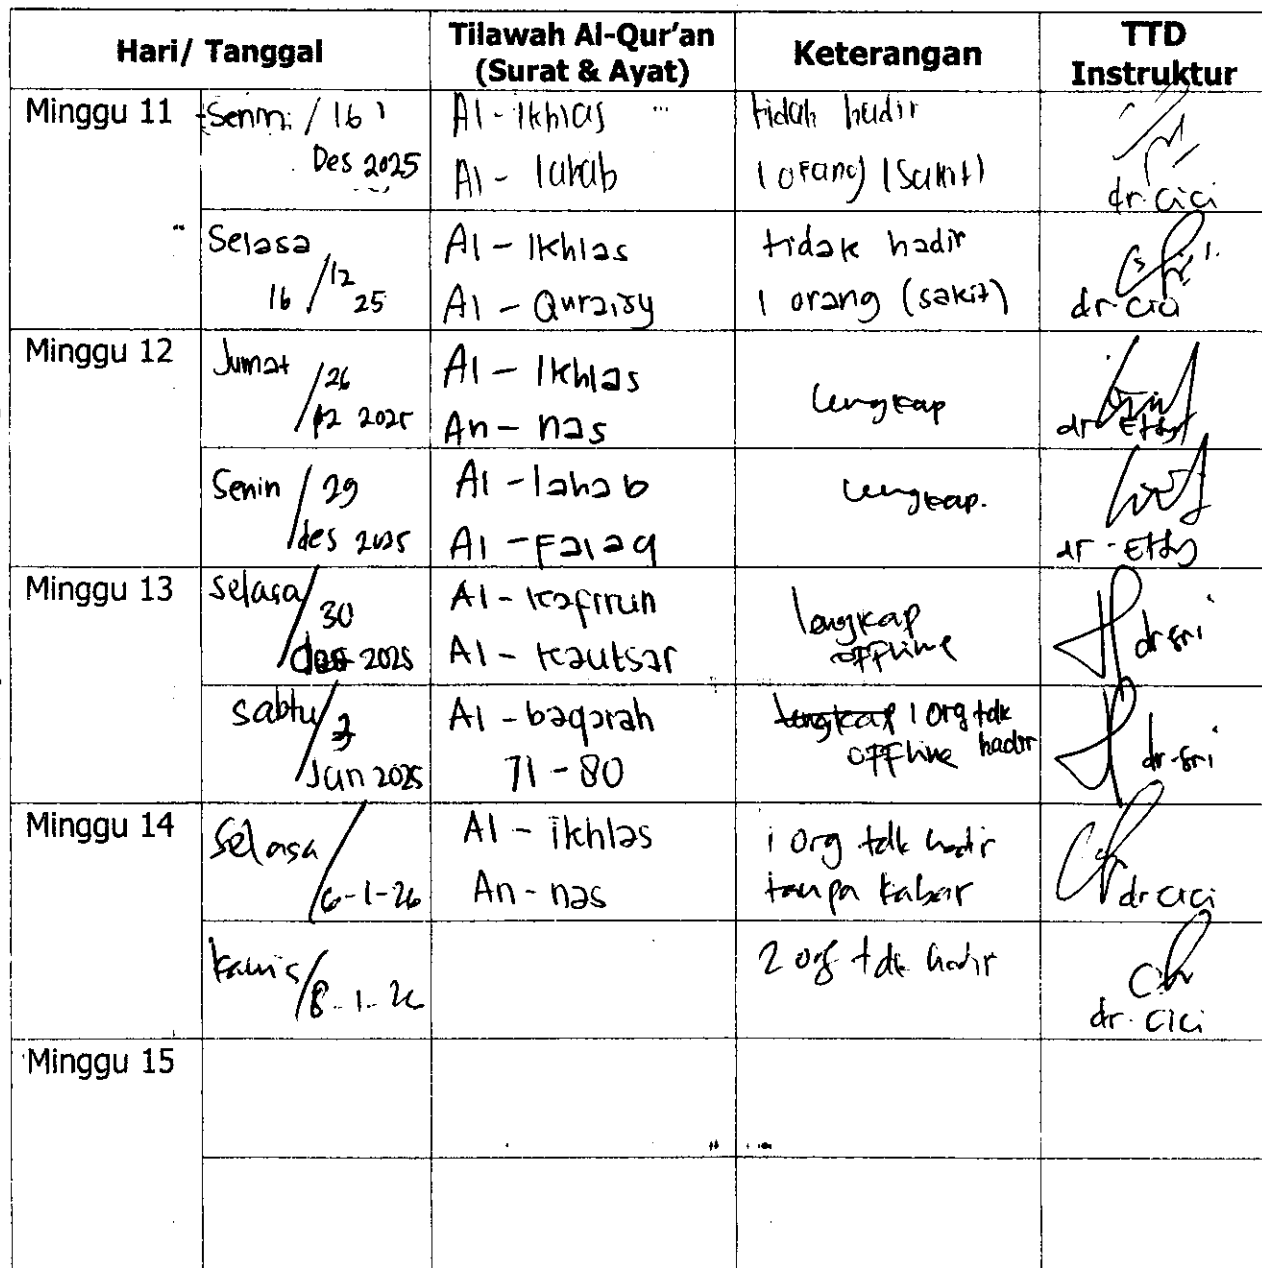 Hari/ Tanggal
Tilawah Al-Qur'an
(Surat & Ayat)
Keterangan
TTD
Instruktur
Minggu 11
Senin / 16
Des 2025
Al-Ikhlas
Al-lahab
tidak hadir
1 orang (sakit)
dr. Cici
Selasa
16/12 25
Al-Ikhlas
Al-Quraisy
tidak hadir
1 orang (sakit)
dr. Cici
Minggu 12
Jumat /26
12 2025
Al-Ikhlas
An-nas
lengkap
dr Etty
Senin / 29
des 2025
Al-lahab
Al-Falaq
lengkap.
dr. Etty
Minggu 13
Selasa/ 30
des 2025
Al-kafirun
Al-kautsar
lengkap
offline
dr sri
Sabtu/ 3
Jan 2025
Al-baqarah
71-80
lengkap 1 org tdk
offline hadir
dr. sri
Minggu 14
Selasa/
6-1-26
Al-ikhlas
An-nas
1 org tdk hadir
tanpa kabar
dr Cici
Kamis/8-1-26
2 org tdk hadir
dr. Cici
Minggu 15